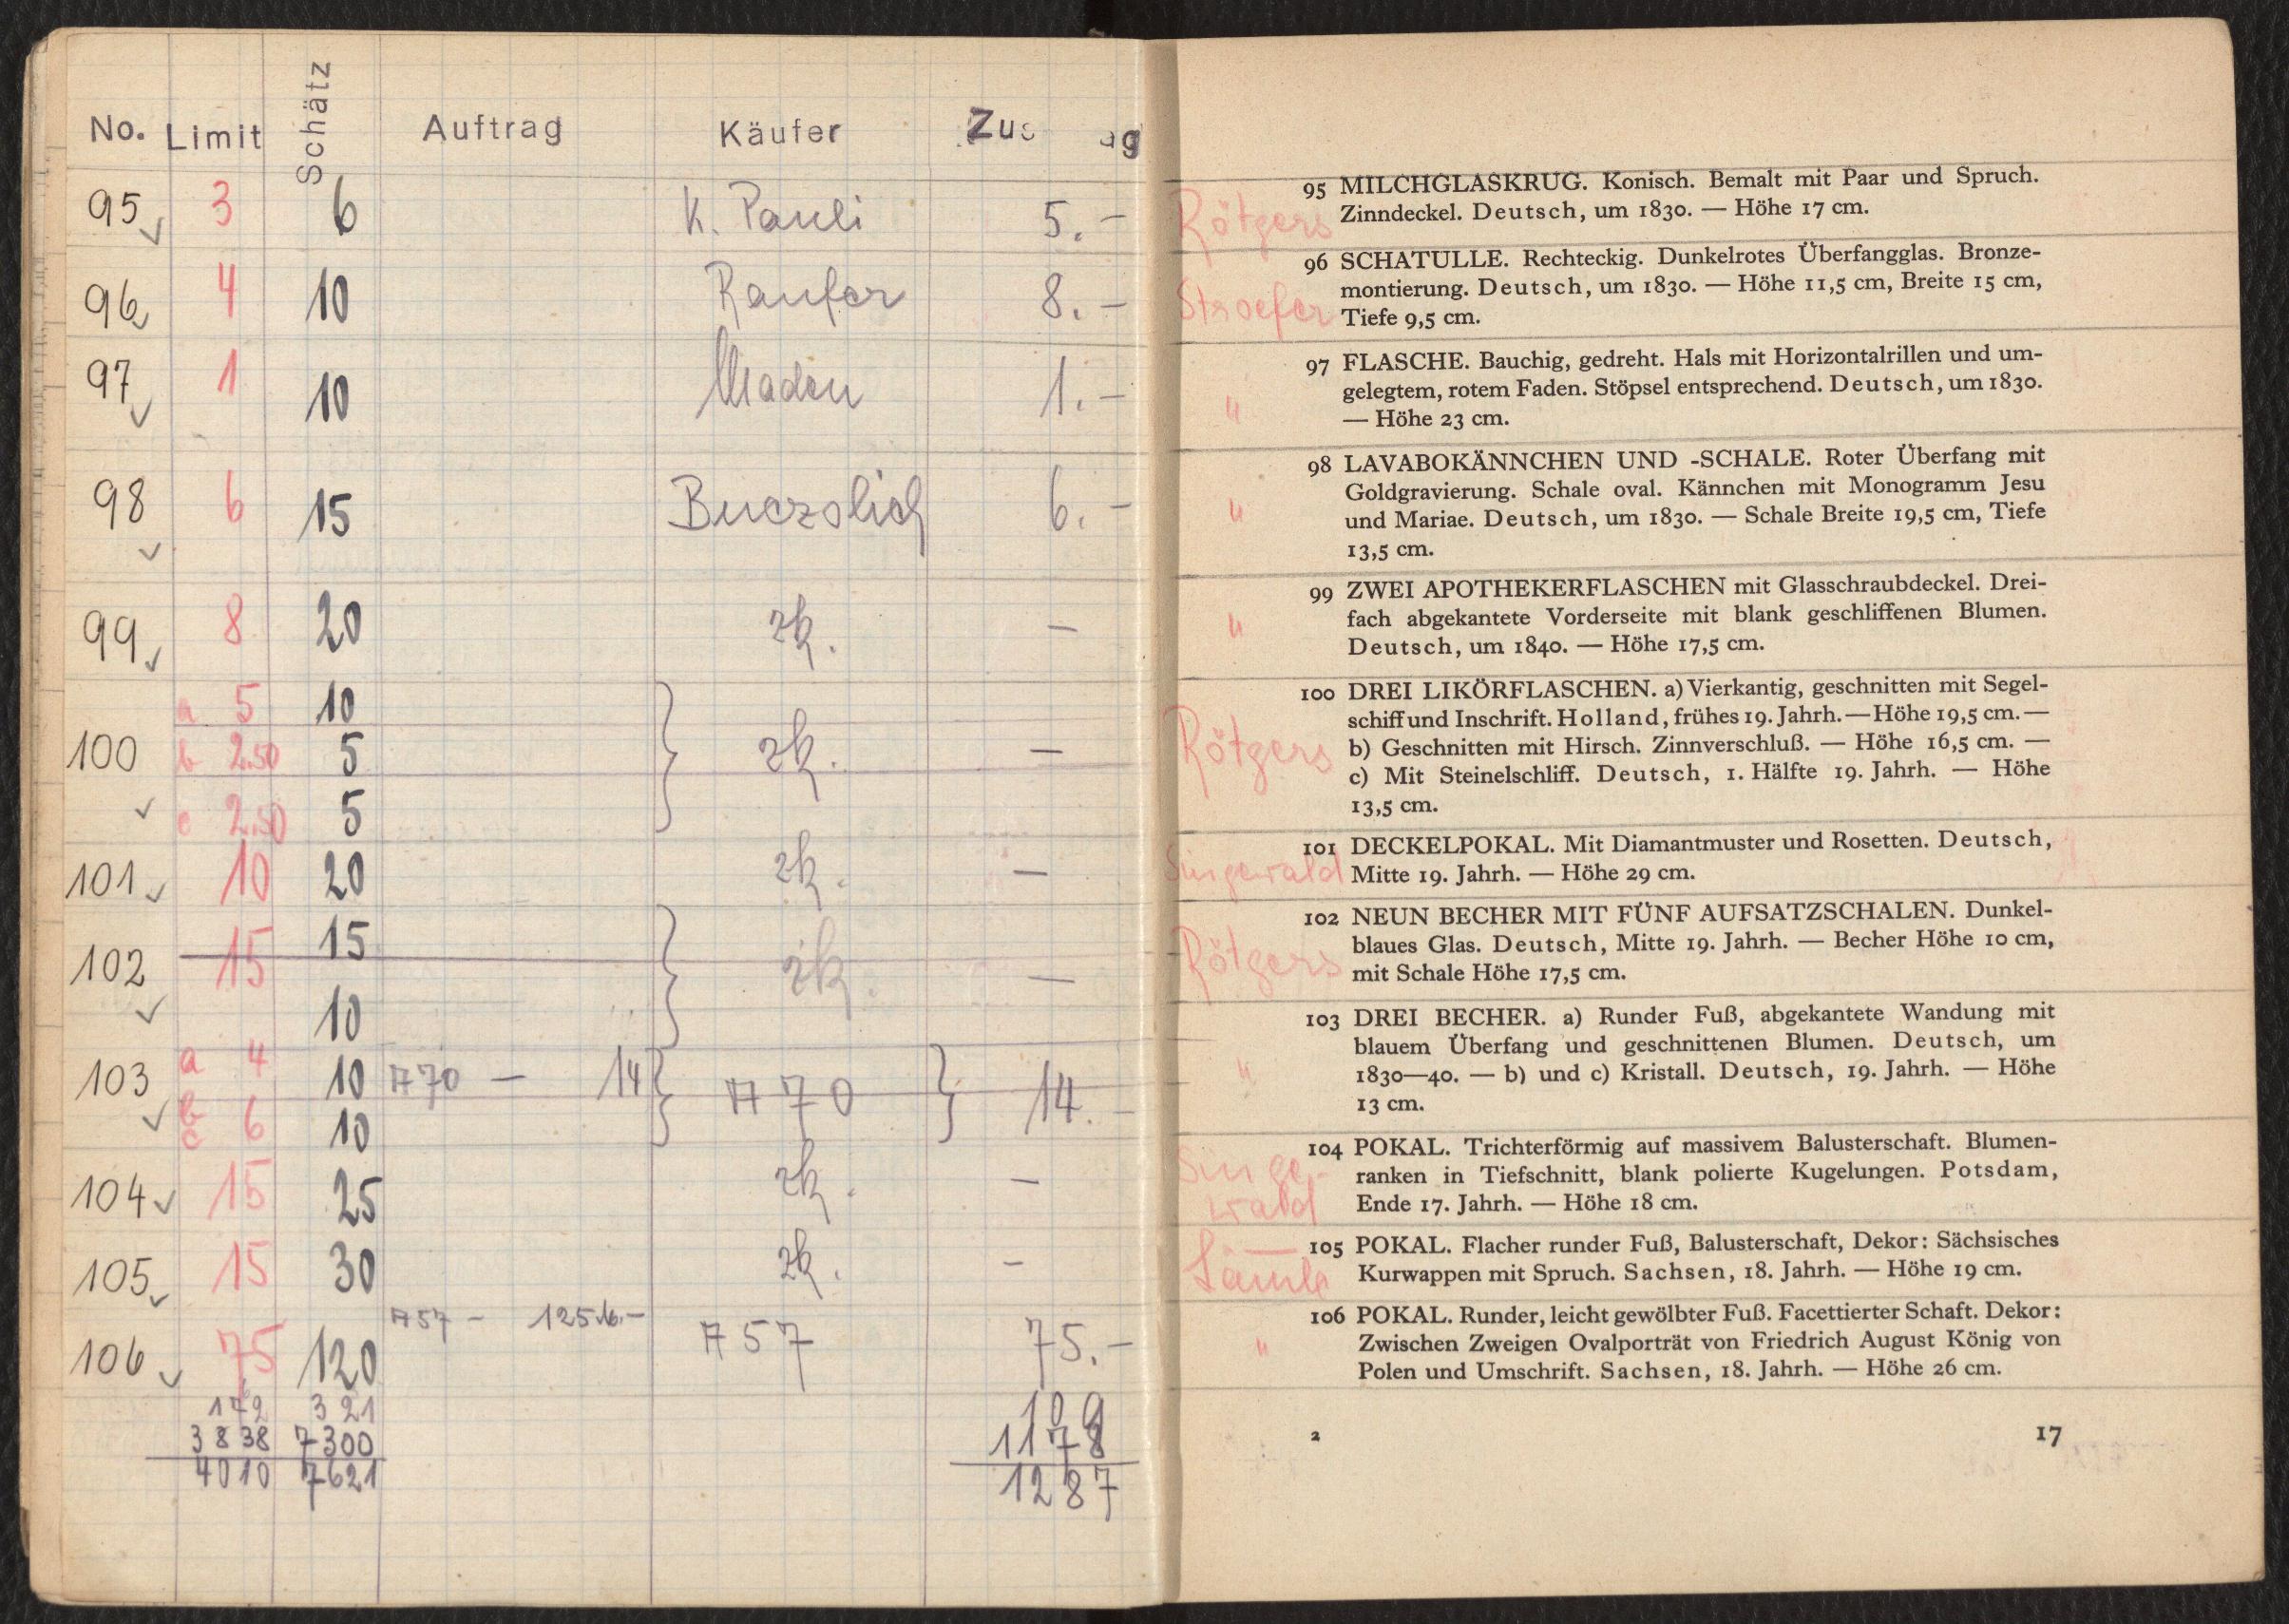 No. Limit Schätz Auftrag Käufer Zus ag
95 3 6 K. Pauli 5.–
96 4 10 Raufer 8.–
97 1 10 Maden 1.–
98 6 15 Buczolich 6.–
99 8 20 zk. –
a 5 10
100 b 2.50 5 zk. –
c 2.50 5
101 10 20 zk. –
15
102 15 zk. –
10
a 4
103 10 A 70 – 14 A 70 14.–
b c 6 10
104 15 25 zk. –
105 15 30 zk. –
A 57 – 125 M.–
106 75 120 A 57 75.–
172 321 109
3838 7300 1178
4010 7621 1287
Rötgers
95 MILCHGLASKRUG. Konisch. Bemalt mit Paar und Spruch.
Zinndeckel. Deutsch, um 1830. — Höhe 17 cm.
Stroefer
96 SCHATULLE. Rechteckig. Dunkelrotes Überfangglas. Bronze-
montierung. Deutsch, um 1830. — Höhe 11,5 cm, Breite 15 cm,
Tiefe 9,5 cm.
"
97 FLASCHE. Bauchig, gedreht. Hals mit Horizontalrillen und um-
gelegtem, rotem Faden. Stöpsel entsprechend. Deutsch, um 1830.
— Höhe 23 cm.
"
98 LAVABOKÄNNCHEN UND -SCHALE. Roter Überfang mit
Goldgravierung. Schale oval. Kännchen mit Monogramm Jesu
und Mariae. Deutsch, um 1830. — Schale Breite 19,5 cm, Tiefe
13,5 cm.
"
99 ZWEI APOTHEKERFLASCHEN mit Glasschraubdeckel. Drei-
fach abgekantete Vorderseite mit blank geschliffenen Blumen.
Deutsch, um 1840. — Höhe 17,5 cm.
Rötgers
100 DREI LIKÖRFLASCHEN. a) Vierkantig, geschnitten mit Segel-
schiff und Inschrift. Holland, frühes 19. Jahrh. — Höhe 19,5 cm. —
b) Geschnitten mit Hirsch. Zinnverschluß. — Höhe 16,5 cm. —
c) Mit Steinelschliff. Deutsch, 1. Hälfte 19. Jahrh. — Höhe
13,5 cm.
Singewald
101 DECKELPOKAL. Mit Diamantmuster und Rosetten. Deutsch,
Mitte 19. Jahrh. — Höhe 29 cm.
Rötgers
102 NEUN BECHER MIT FÜNF AUFSATZSCHALEN. Dunkel-
blaues Glas. Deutsch, Mitte 19. Jahrh. — Becher Höhe 10 cm,
mit Schale Höhe 17,5 cm.
"
103 DREI BECHER. a) Runder Fuß, abgekantete Wandung mit
blauem Überfang und geschnittenen Blumen. Deutsch, um
1830—40. — b) und c) Kristall. Deutsch, 19. Jahrh. — Höhe
13 cm.
Singe-
wald
104 POKAL. Trichterförmig auf massivem Balusterschaft. Blumen-
ranken in Tiefschnitt, blank polierte Kugelungen. Potsdam,
Ende 17. Jahrh. — Höhe 18 cm.
105 POKAL. Flacher runder Fuß, Balusterschaft, Dekor: Sächsisches
Kurwappen mit Spruch. Sachsen, 18. Jahrh. — Höhe 19 cm.
"
106 POKAL. Runder, leicht gewölbter Fuß. Facettierter Schaft. Dekor:
Zwischen Zweigen Ovalporträt von Friedrich August König von
Polen und Umschrift. Sachsen, 18. Jahrh. — Höhe 26 cm.
2 17